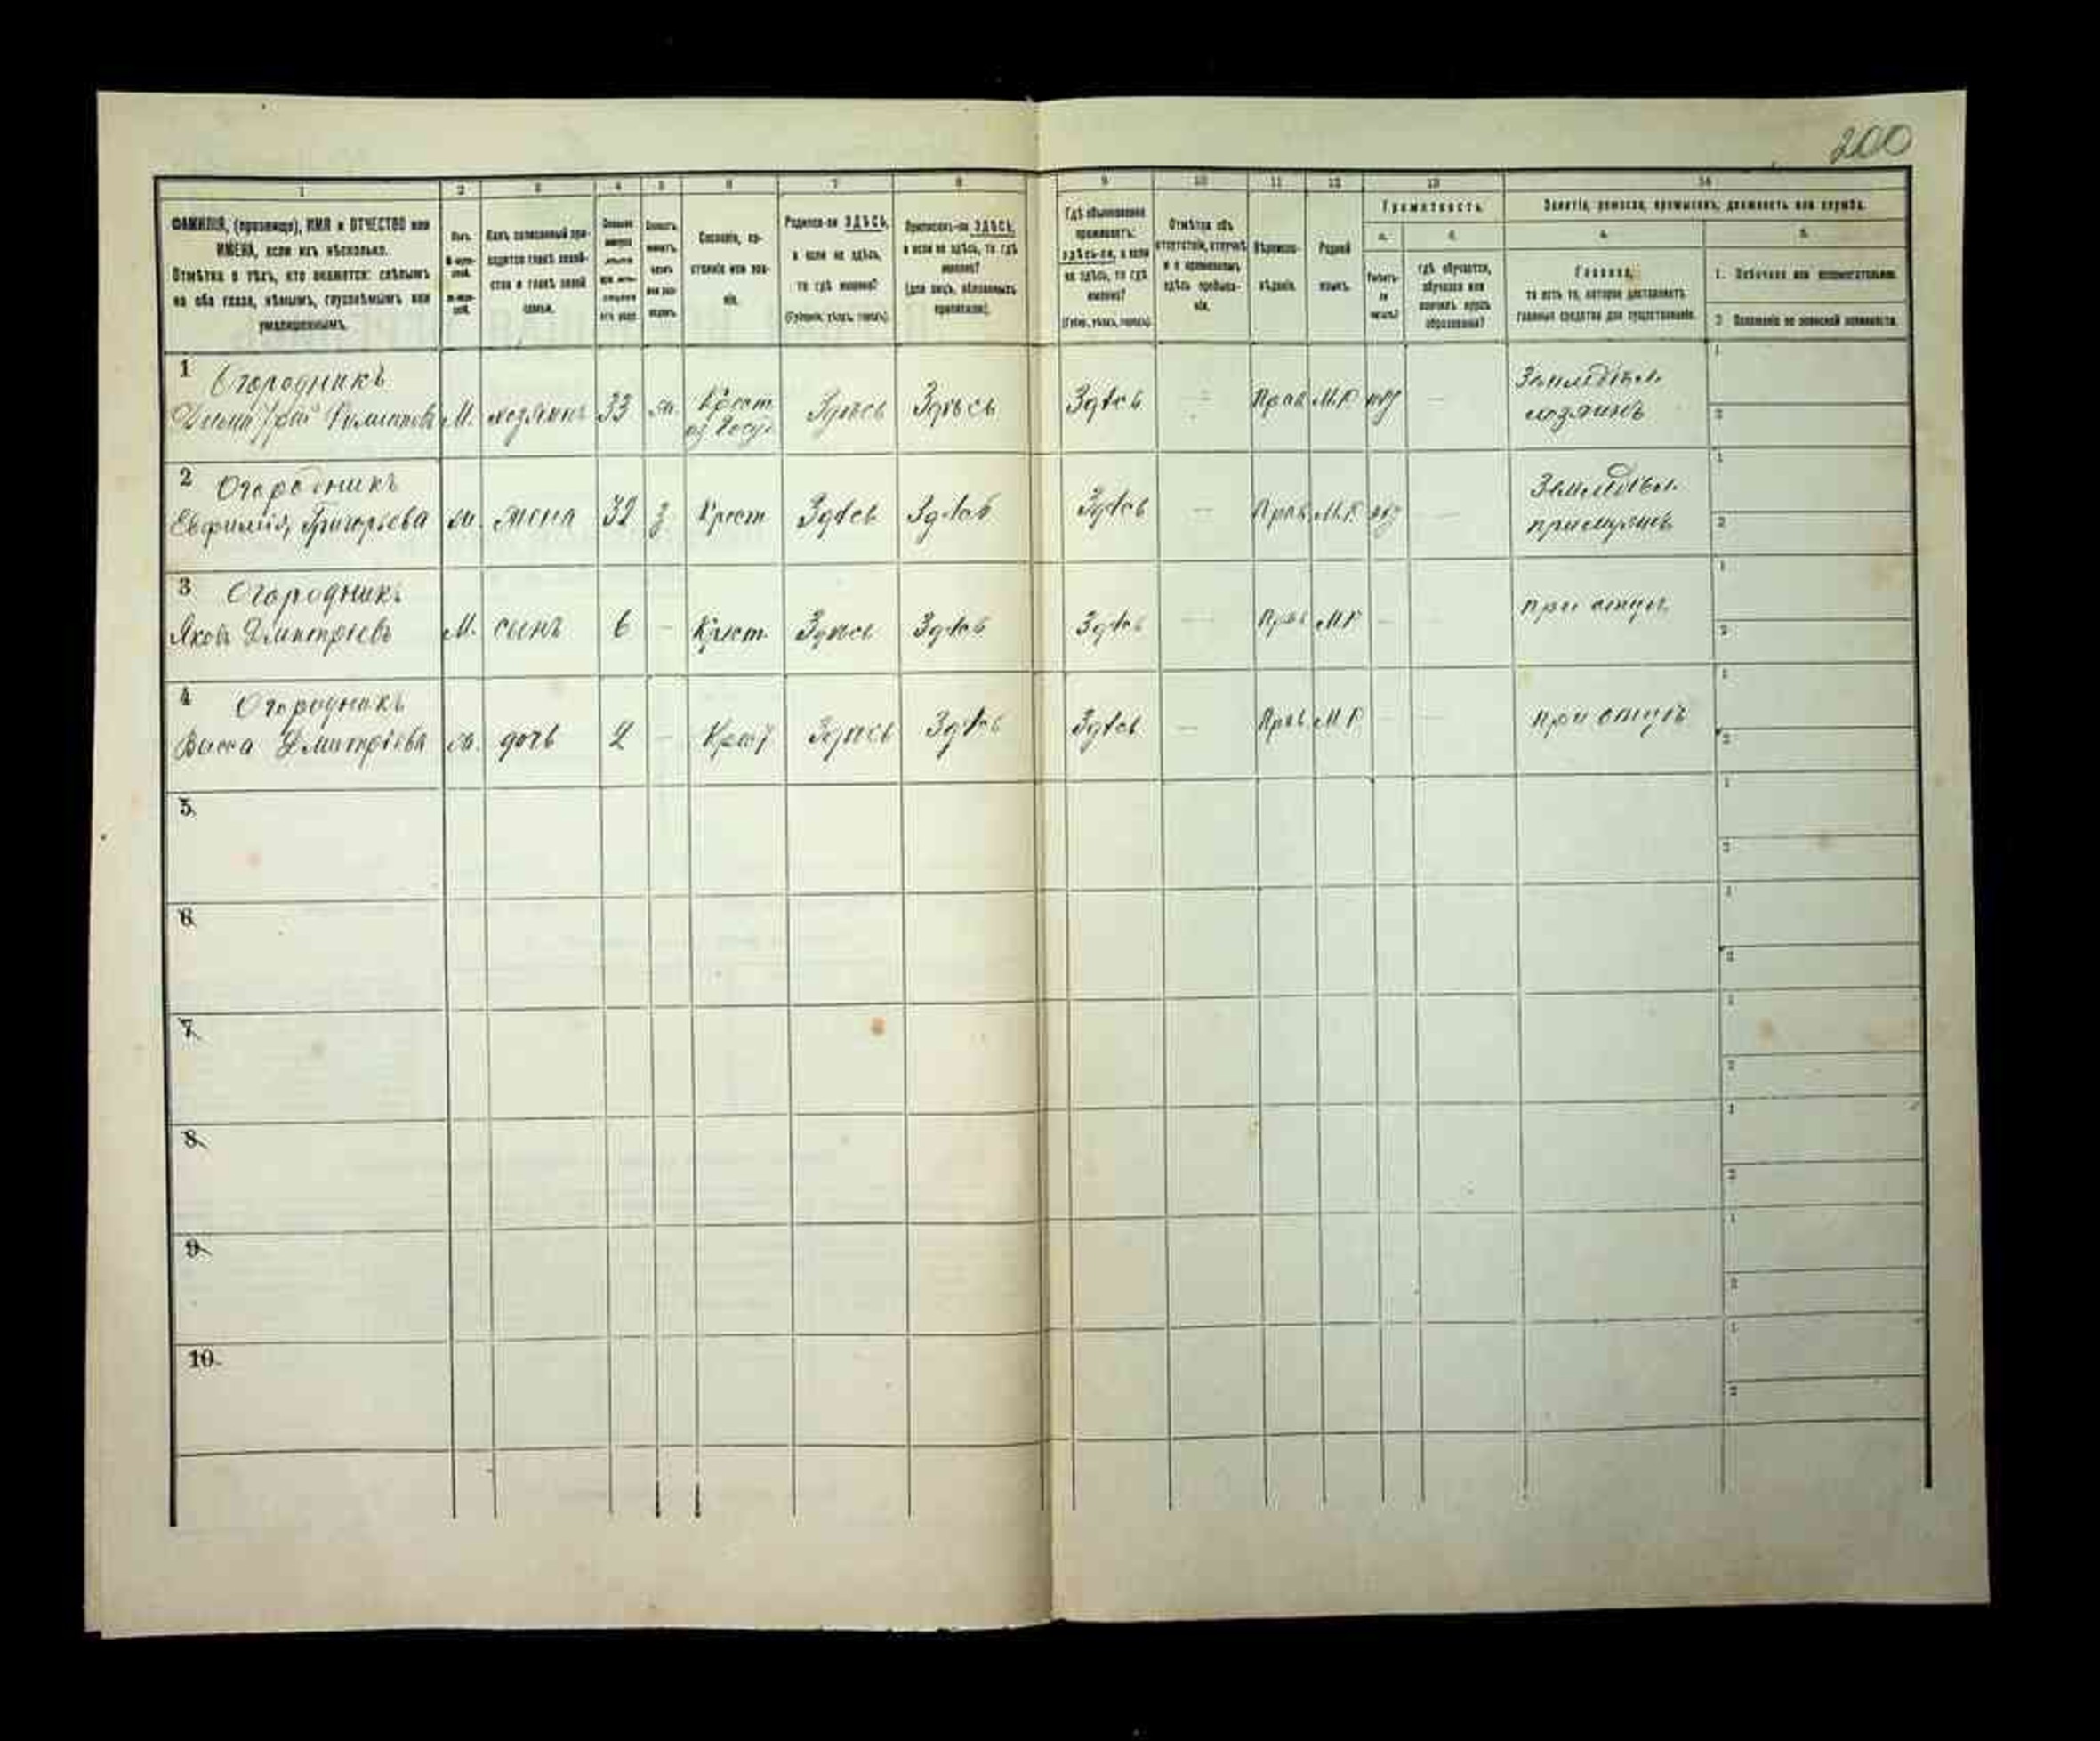 200
1 2 3 4 5 6 7 8 9 10 11 12 13 14
ФАМИЛІЯ, (прозвище), ИМЯ и ОТЧЕСТВО или
ИМЕНА, если ихъ нѣсколько.
Отмѣтка о тѣхъ, кто окажется: слѣпымъ
на оба глаза, нѣмымъ, глухонѣмымъ или
умалишеннымъ.
Полъ.
Какъ записанный при-
ходится главѣ хозяй-
ства и главѣ своей
семьи.
Сословіе, со-
стояніе или зва-
ніе.
Родился-ли ЗДѢСЬ,
а если не здѣсь,
то гдѣ именно?
(Губернія, уѣздъ, городъ).
Приписанъ-ли ЗДѢСЬ,
а если не здѣсь, то гдѣ
именно?
(для лицъ, обязанныхъ
припискою).
Гдѣ обыкновенно
проживаетъ:
здѣсь-ли, а если
не здѣсь, то гдѣ
именно?
(Губер., уѣздъ, городъ).
Отмѣтка объ
отсутствіи, отлучкѣ
и о временномъ
здѣсь пребыва-
ніи.
Вѣроиспо-
вѣданіе.
Родной
языкъ.
Грамотность.
а. б.
Умѣетъ-
ли
читать?
гдѣ обучается,
обучался или
кончилъ курсъ
образованія?
Занятія, ремесло, промыселъ, должность или служба.
а. б.
Главное,
то есть то, которое доставляетъ
главныя средства для существованія.
1. Побочное или вспомогательное.
2 Положеніе по воинской повинности.
1 Огородникъ
М. хозяинъ 33 Крест. Здѣсь Здѣсь Здѣсь — Прав. М.Р. — Земледѣл.
хозяинъ
1
2
2 Огородникъ
Евфимія Григорьева ж. жена 32 з Крест Здѣсь Здѣсь Здѣсь — Прав М.Р. — Земледѣл.
1
2
3 Огородникъ
Яковъ Дмитріевъ М. сынъ 6 — Крест. Здѣсь Здѣсь Здѣсь — Прав М.Р — — при отцѣ
1
2
4 Огородникъ
Васса Дмитріева ж. дочь 2 — Крест Здѣсь Здѣсь Здѣсь — Прав. М.Р — — при отцѣ
1
2
5
1
2
6
1
2
7
1
2
8
1
2
9
1
2
10
1
2